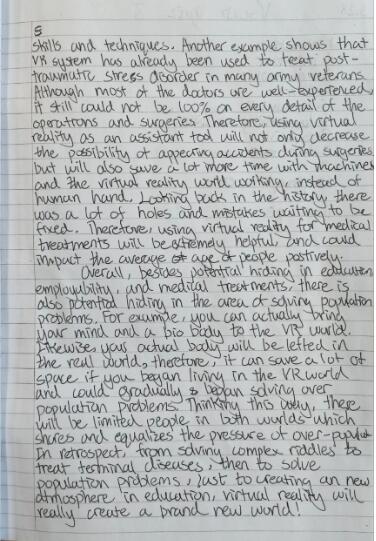 5
skills and techniques. Another example shows that
VR system has already been used to treat post-
traumatic stress disorder in many army veterans.
Although most of the doctors are well-experienced,
it still could not be 100% on every detail of the
operations and surgeries. Therefore, using virtual
reality as an assistant tool will not only decrease
the possibility of appearing accidents during surgeries
but will also save a lot more time with machines
and the virtual reality world working, instead of
human hand. Looking back in the history there
was a lot of holes and mistakes waiting to be
fixed. Therefore, using virtual reality for medical
treatments will be extremely helpful, and could
impact the average age of people postively.
Overall, besides potential hiding in education
employability, and medical treatments, there is
also potential hiding in the area of solving population
problems. For example, you can actually bring
your mind and a bio body to the VR world.
Likewise, your actual body will be lefted in
the real world, therefore, it can save a lot of
space if you began living in the VR world
and could gradually began solving over
population problems. Thinking this way, there
will be limited people in both worlds which
shares and equalizes the pressure of over-
In retrospect, from solving complex riddles to
treat terminal diseases, then to solve
population problems, last to creating an new
atmosphere in education, virtual reality will
really create a brand new world!